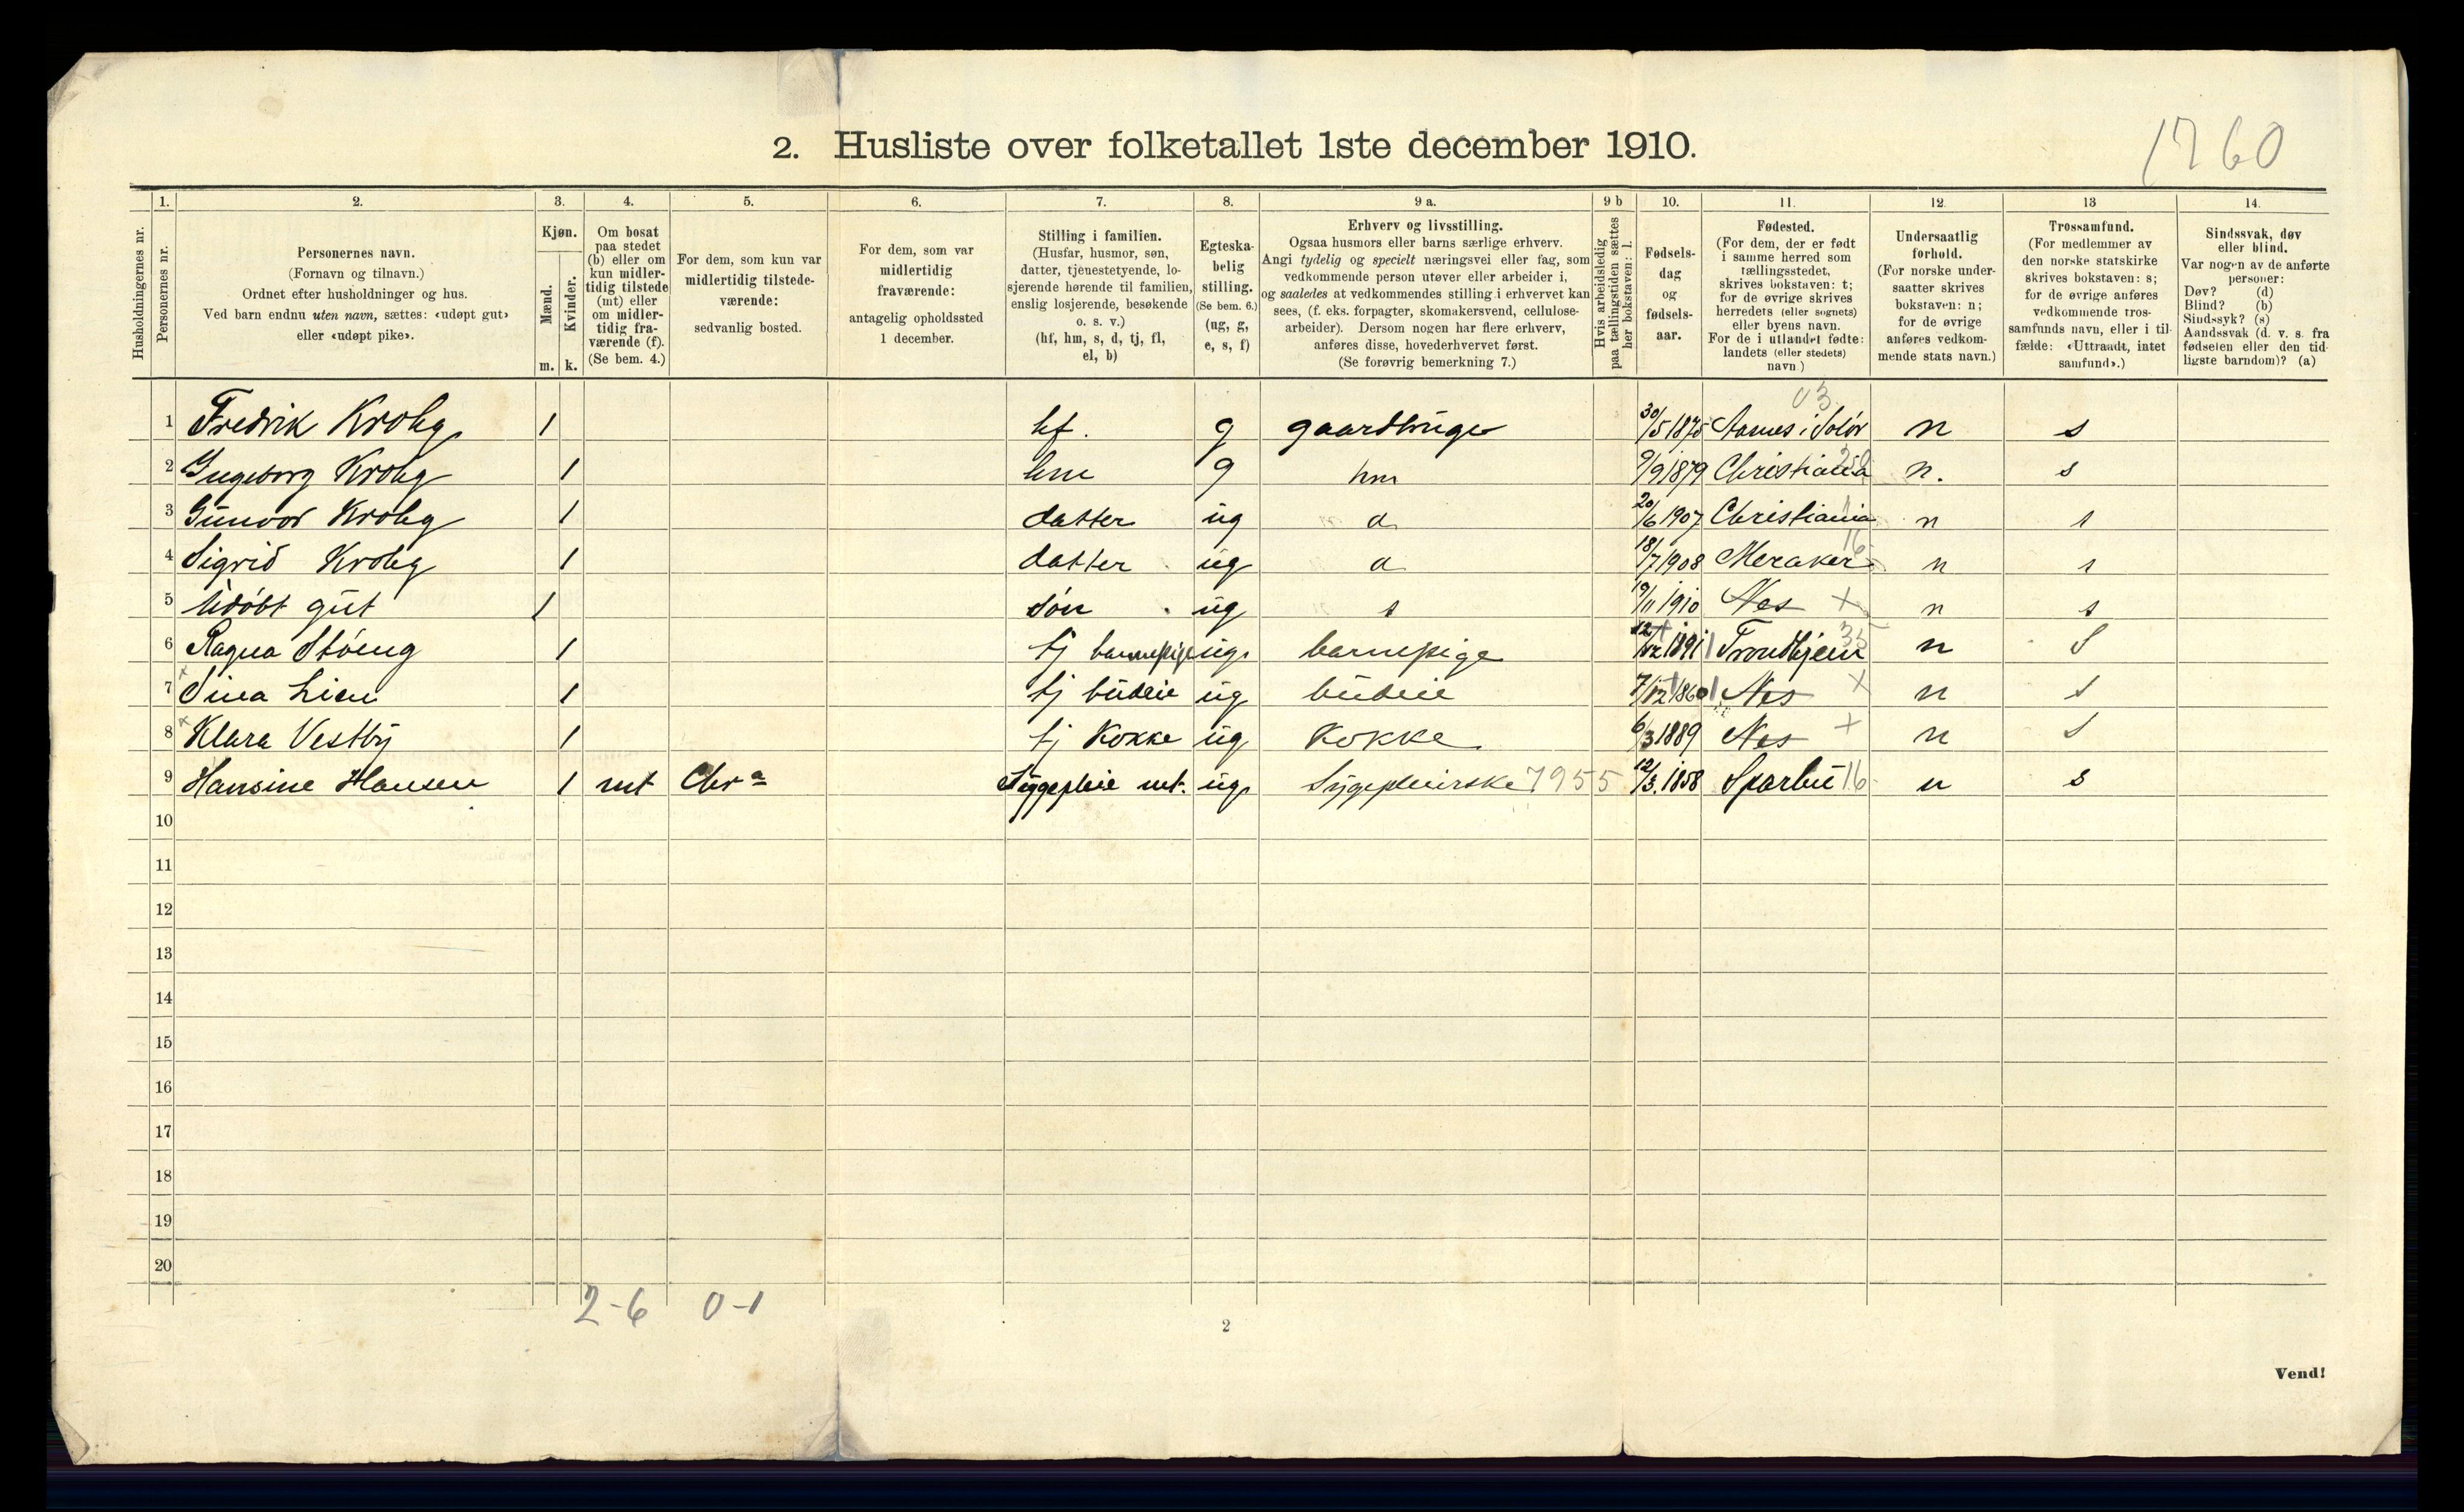 1760
2. Husliste over folketallet 1ste december 1910.
Husholdningernes nr.
1. Personernes nr.
2. Personernes navn. (Fornavn og tilnavn.) Ordnet efter husholdninger og hus. Ved barn endnu uten navn, sættes: «udøpt gut» eller «udøpt pike».
3. Kjøn. Mænd. m. Kvinder. k.
4. Om bosat paa stedet (b) eller om kun midler-tidig tilstede (mt) eller om midler-tidig fra-værende (f). (Se bem. 4.)
5. For dem, som kun var midlertidig tilstede-værende: sedvanlig bosted.
6. For dem, som var midlertidig fraværende: antagelig opholdssted 1 december.
7. Stilling i familien. (Husfar, husmor, søn, datter, tjenestetyende, lo-sjerende hørende til familien, enslig losjerende, besøkende o. s. v.) (hf, hm, s, d, tj, fl, el, b)
8. Egteska-belig stilling. (Se bem. 6.) (ug, g, e, s, f)
9 a. Erhverv og livsstilling. Ogsaa husmors eller barns særlige erhverv. Angi tydelig og specielt næringsvei eller fag, som vedkommende person utøver eller arbeider i, og saaledes at vedkommendes stilling i erhvervet kan sees, (f. eks. forpagter, skomakersvend, cellulose-arbeider). Dersom nogen har flere erhverv, anføres disse, hovederhvervet først. (Se forøvrig bemerkning 7.)
9 b Hvis arbeidsledig paa tællingstiden sættes her bokstaven: l.
10. Fødsels-dag og fødsels-aar.
11. Fødested. (For dem, der er født i samme herred som tællingsstedet, skrives bokstaven: t; for de øvrige skrives herredets (eller sognets) eller byens navn. For de i utlandet fødte: landets (eller stedets) navn.)
12. Undersaatlig forhold. (For norske under-saatter skrives bokstaven: n; for de øvrige anføres vedkom-mende stats navn.)
13 Trossamfund. (For medlemmer av den norske statskirke skrives bokstaven: s; for de øvrige anføres vedkommende tros-samfunds navn, eller i til-fælde: «Uttraadt, intet samfund».)
14. Sindssvak, døv eller blind. Var nogen av de anførte personer: Døv? (d) Blind? (b) Sindssyk? (s) Aandssvak (d. v. s. fra fødselen eller den tid-ligste barndom)? (a)
03
1 Fredrik Krohg 1 hf. g gaardbruger 30/5 1875 Aasnes i Solør n s
2 Ingeborg Krohg 1 hm g hm 9/9 1879 Christiania n. s
3 Gunvor Krohg 1 datter ug d 20/6 1907 Christiania n s
4 Sigrid Krohg 1 datter ug d 18/7 1908 Meraker 16 n s
5 Udøbt gut 1 søn ug s 19/11 1910 Nes + n s
6 Ragna Støeng 1 tj barnepige ug. barnepige 12/12 1891 Trondhjem 35 n S
7 Sina Lien 1 tj budeie ug budeie 7/12 1860 Nes + n S
8 Klara Vestby 1 tj Kokke ug Kokke 6/3 1889 Nes + n S
9 Hansine Hansen 1 mt Chra Sygepleie mt. ug. Sygepleierske 7955 12/3. 1858 Sparbu 16 n s
10
11
12
13
14
15
16
17
18
19
20
2-6 0-1
2
Vend!